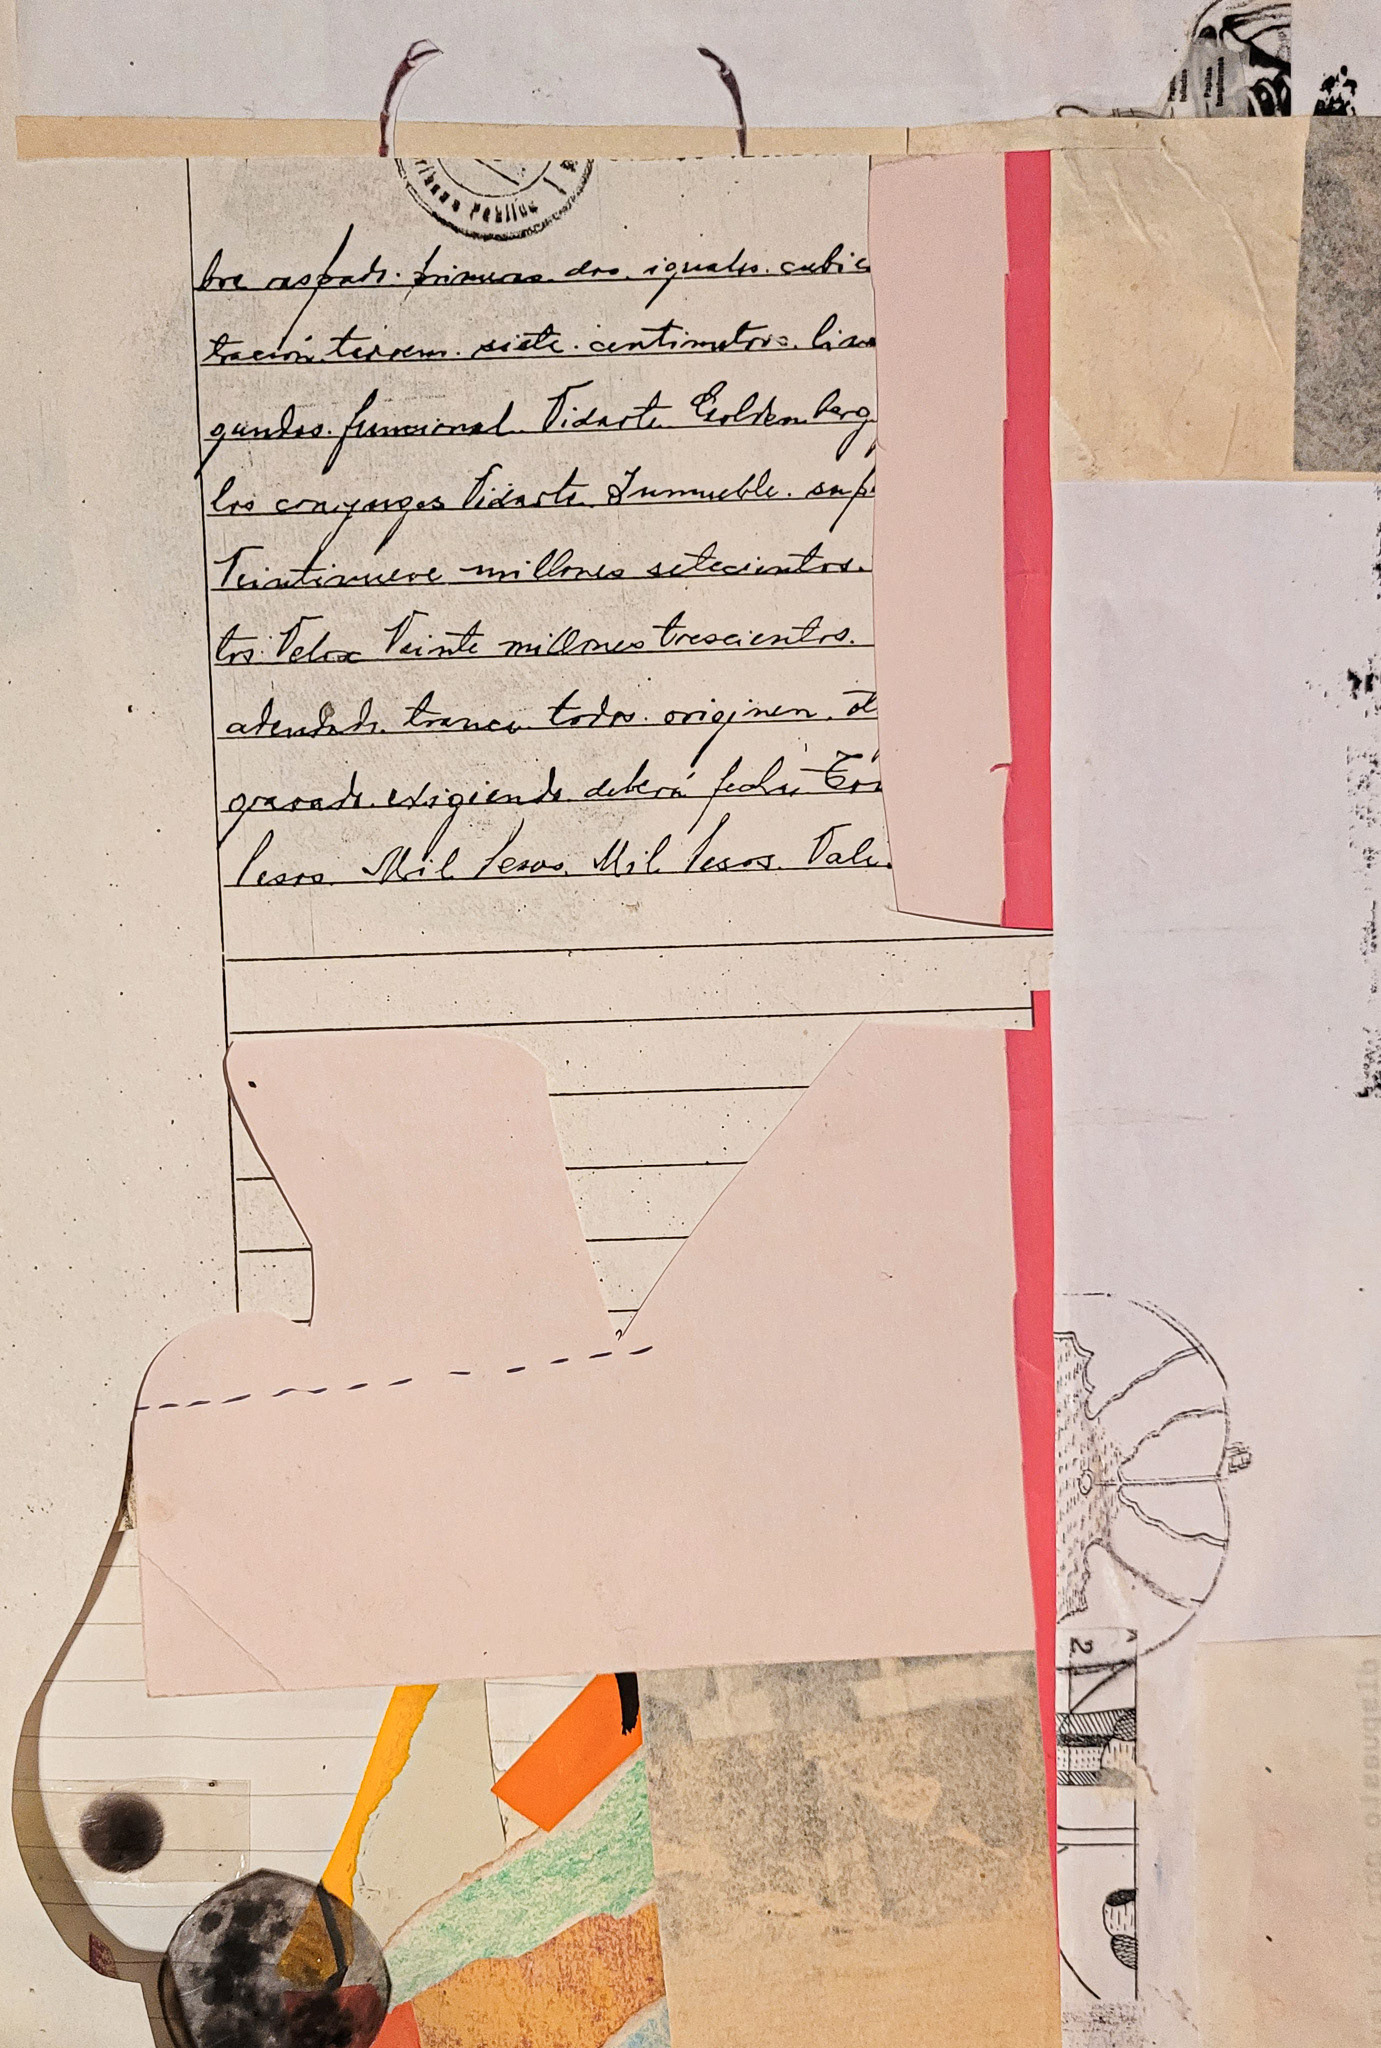 Pública
bre raspado. primeras. dos. iguales. cubie
tración. terrem. siete. centimetros.
gundos. funcional. Vidarte. Goldemberg
los conyuges Vidarte. Inmueble. sup
Veintinueve millones setecientos.
tos. Velox Veinte millones trescientos.
adeudado. todos. originen.
gravado. exigiendo. deberá fecha.
Pesos. Mil Pesos. Mil Pesos. Vale.
2